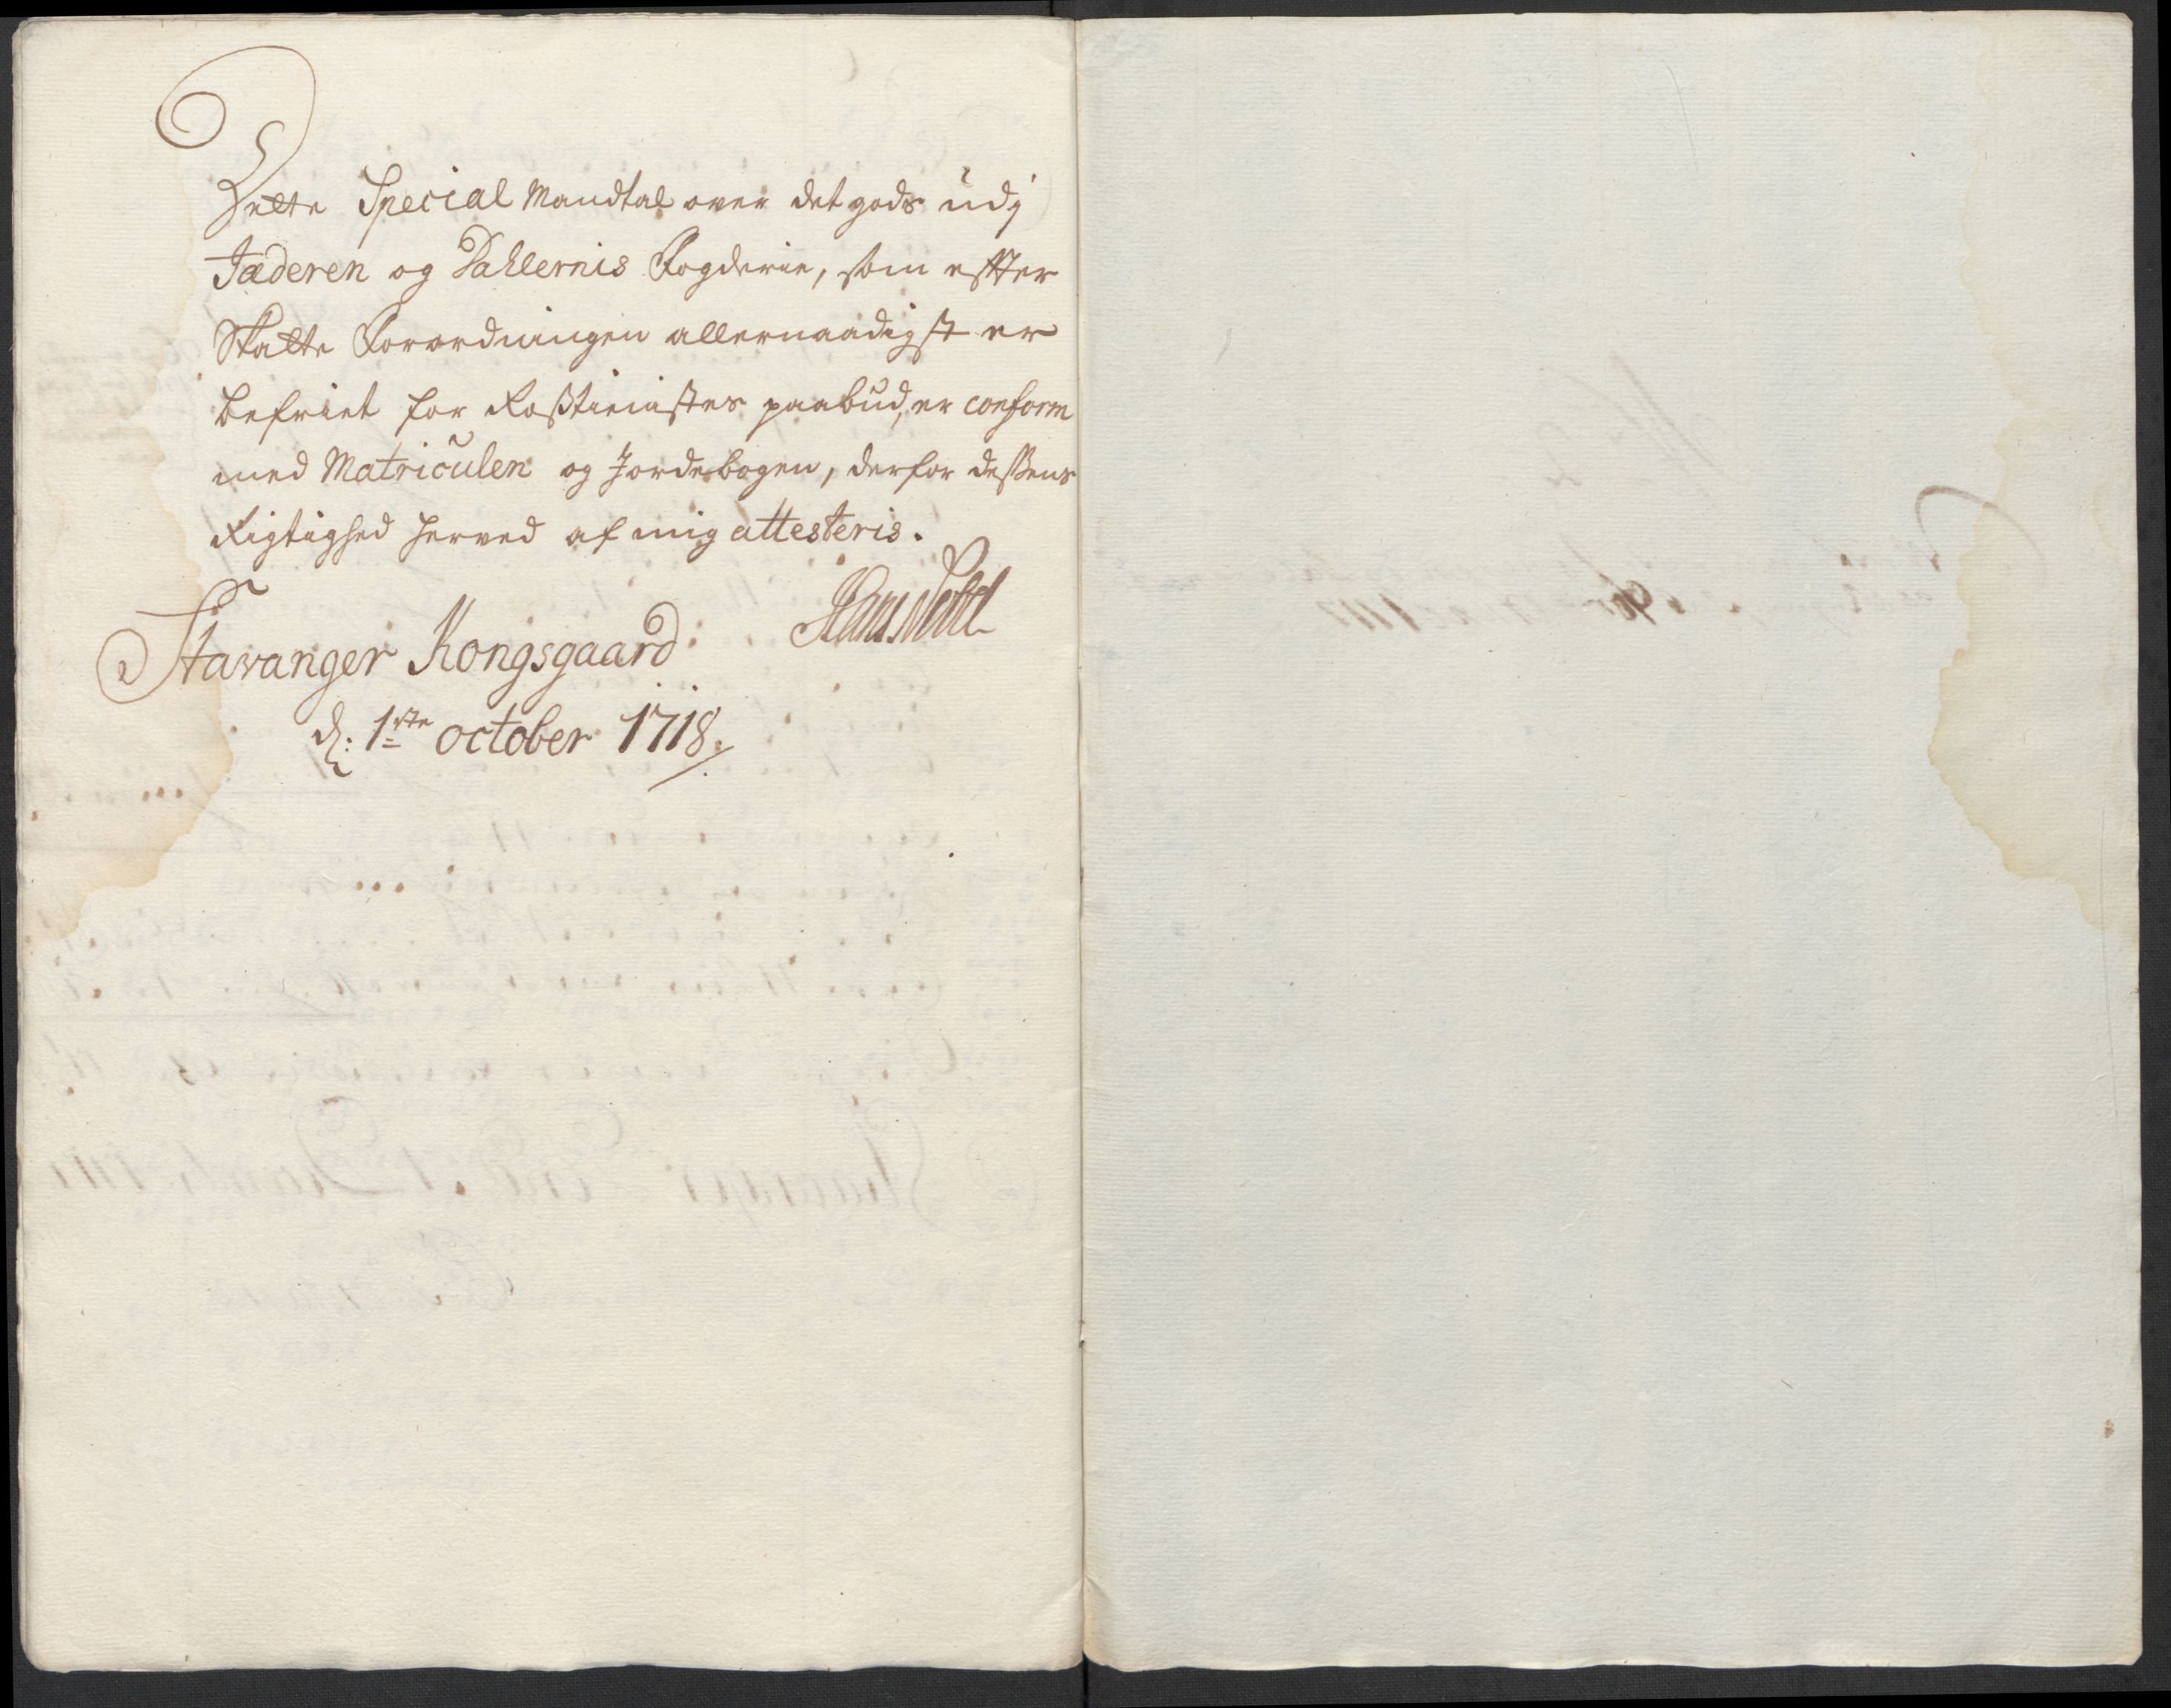 Dette Special Mandtal over det gods udj
Jæderen og Dahlernis Fogderie, som effter
Skatte Forordningen allernaadigst er
befriet for Roßtienistes paabud, er conform
med Matriculen og Jordebogen, derfor deßens
Rigtighed herved af mig attesteris.
Stavanger Kongsgaard
d: 1ste october 1718.